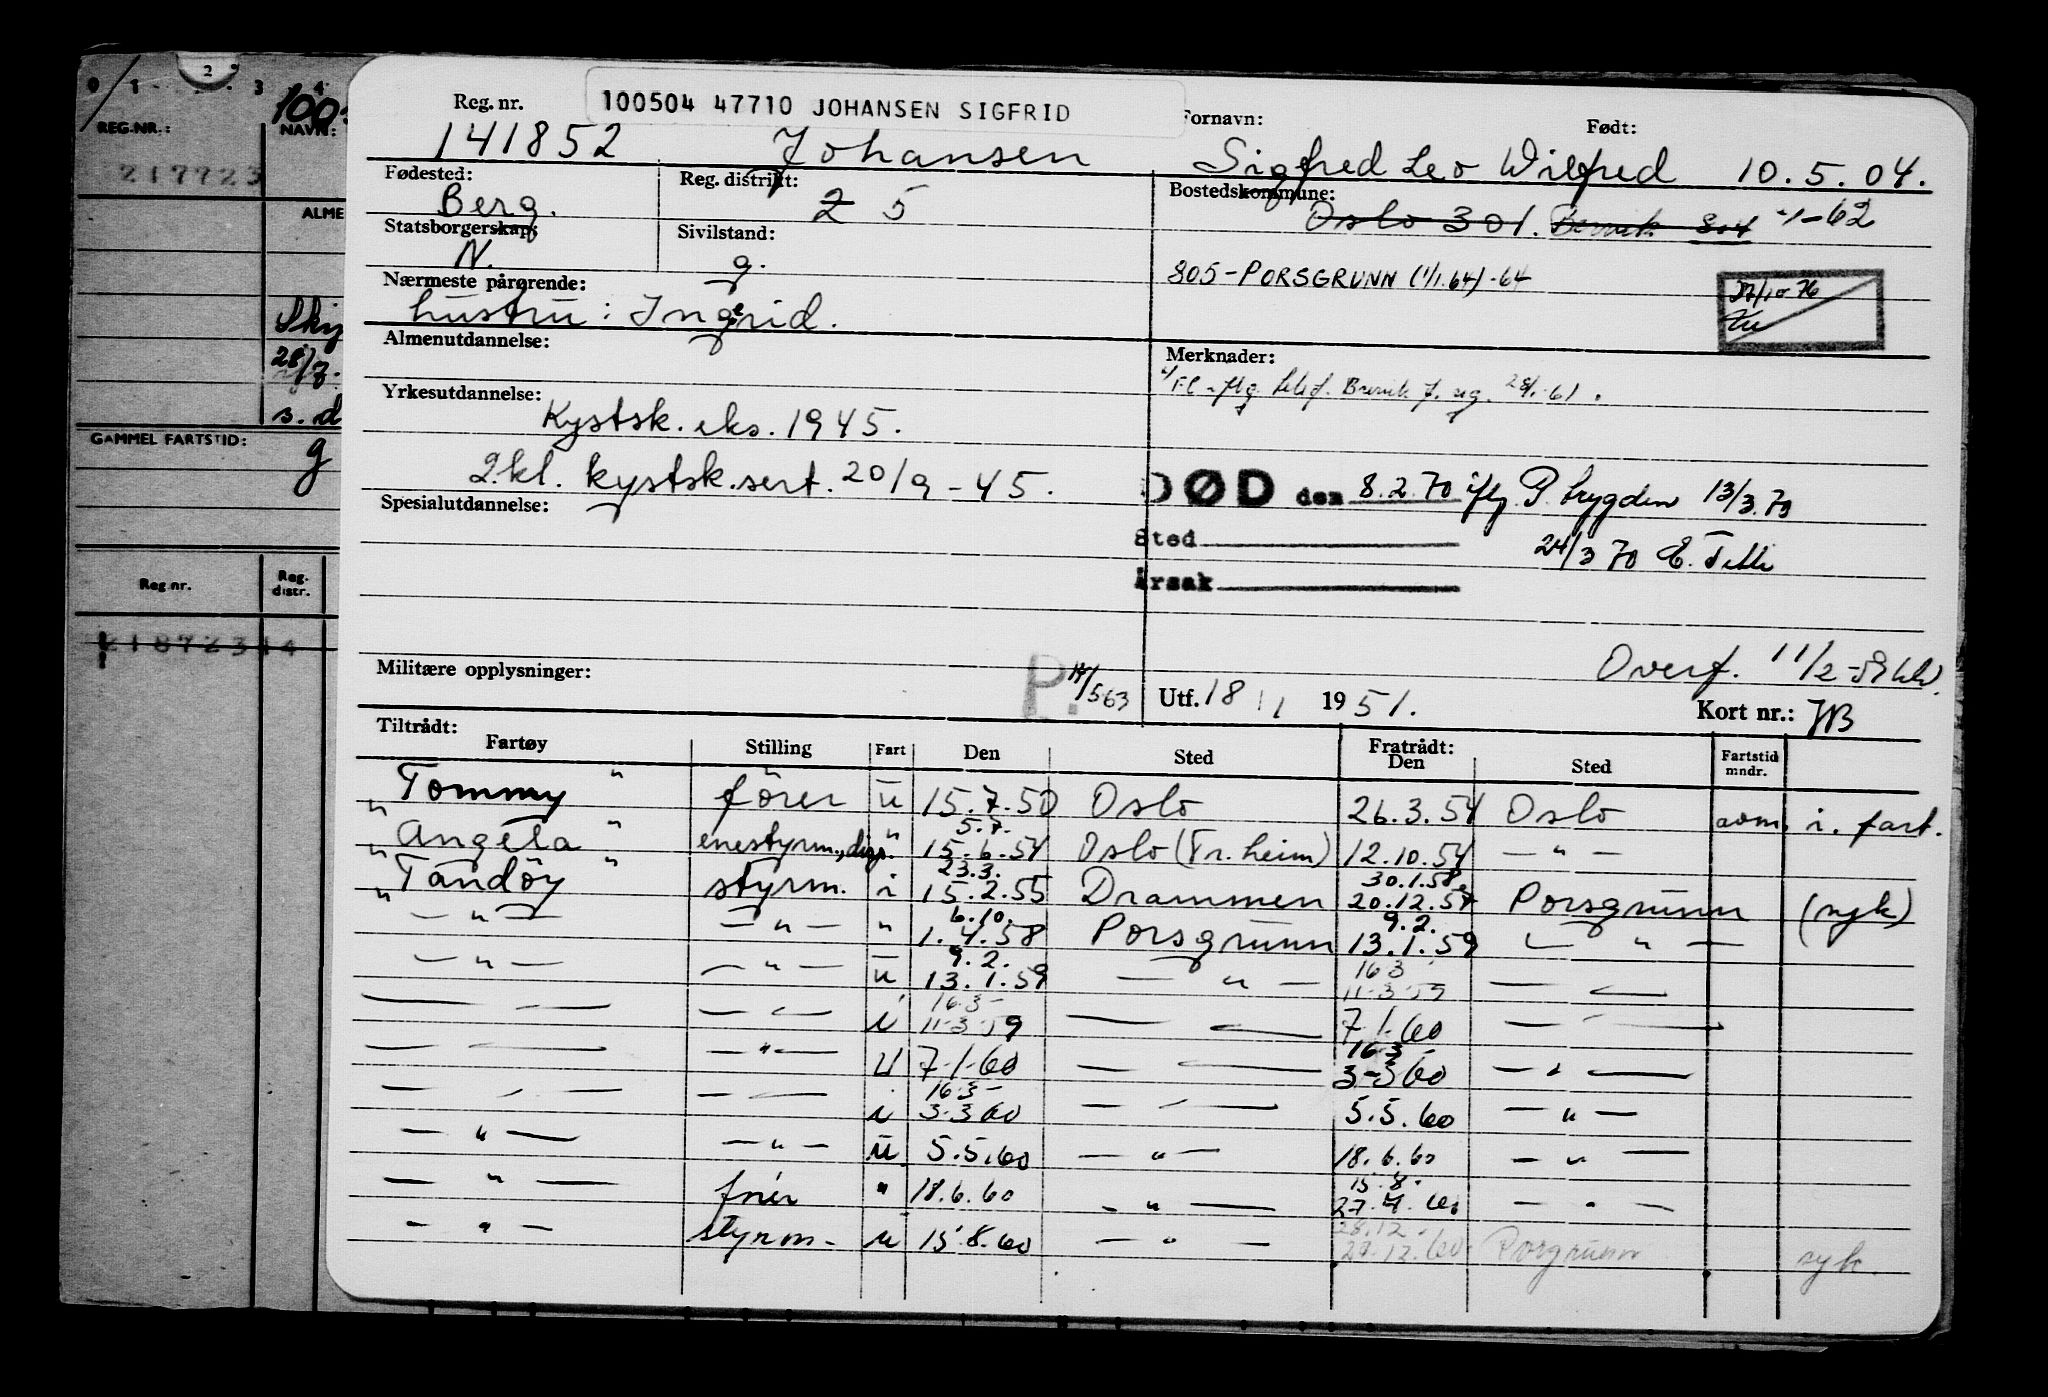 0 1 2 3 4
REG.NR.:
NAVN:
217723
ALME
Skij
28/7.
s. d
GAMMEL FARTSTID:
g
Reg nr.
Reg. distr.
218723 14
100504 47710 JOHANSEN SIGFRID
Reg. nr. Fornavn: Født:
141852 Johansen Sigfred Leo Wilfred 10.5.04.
Fødested: Reg. distrikt: Bostedskommune:
Berg. 2 5 Oslo 301. Brevik 804 -62
Statsborgerskap: Sivilstand:
N. g. 805-PORSGRUNN (1/1.64)-64
Nærmeste pårørende: 27/10-76
hustru: Ingrid.
Almenutdannelse: Merknader:
Yrkesutdannelse: Brevik 61.
Kystsk. eks. 1945.
2.kl. kystsk.sert. 20/9-45. DØD den 8.2.70 iflg. P. trygden 13/3.70
Spesialutdannelse: Sted
24/3 70 E.
Årsak
Overf. 11/2-
Militære opplysninger: P. 14/5 63 Utf. 18/1 1951. Kort nr.: 
Tiltrådt: Fratrådt:
Fartøy Stilling Fart Den Sted Den Sted Fartstid mndr.
"Tommy" fører u 15.7.50 Oslo 26.3.54 Oslo avm. i. fart.
"Angela" enestyrm., disp. " 5.7. 15.6.54 Oslo (Tr.heim) 12.10.54 — " —
"Tandöy" styrm. i 23.3. 15.2.55 Drammen 30.1.58 20.12.57 Porsgrunn (syk)
— " — — " — " 6.10. 1.4.58 Porsgrunn 9.2. 13.1.59 — " —
— " — — " — u 9.2. 13.1.59 — " — 16.3 11.3.59 — " —
— " — — " — i 16.3 11.3.59 — " — 7.1.60 — " —
— " — — " — U 7-1-60 — " — 16.3 3-3 60 — " —
— " — — " — i 16.3 3.3 60 — " — 5.5.60 — " —
— " — — " — u 5.5.60 — " — 18.6.60 — " —
— " — fører " 18.6.60 — " — 15.8. 27.7.60 — " —
— " — styrm. u 15.8.60 — " — 28.12. 29.12.60 Porsgrunn syk.